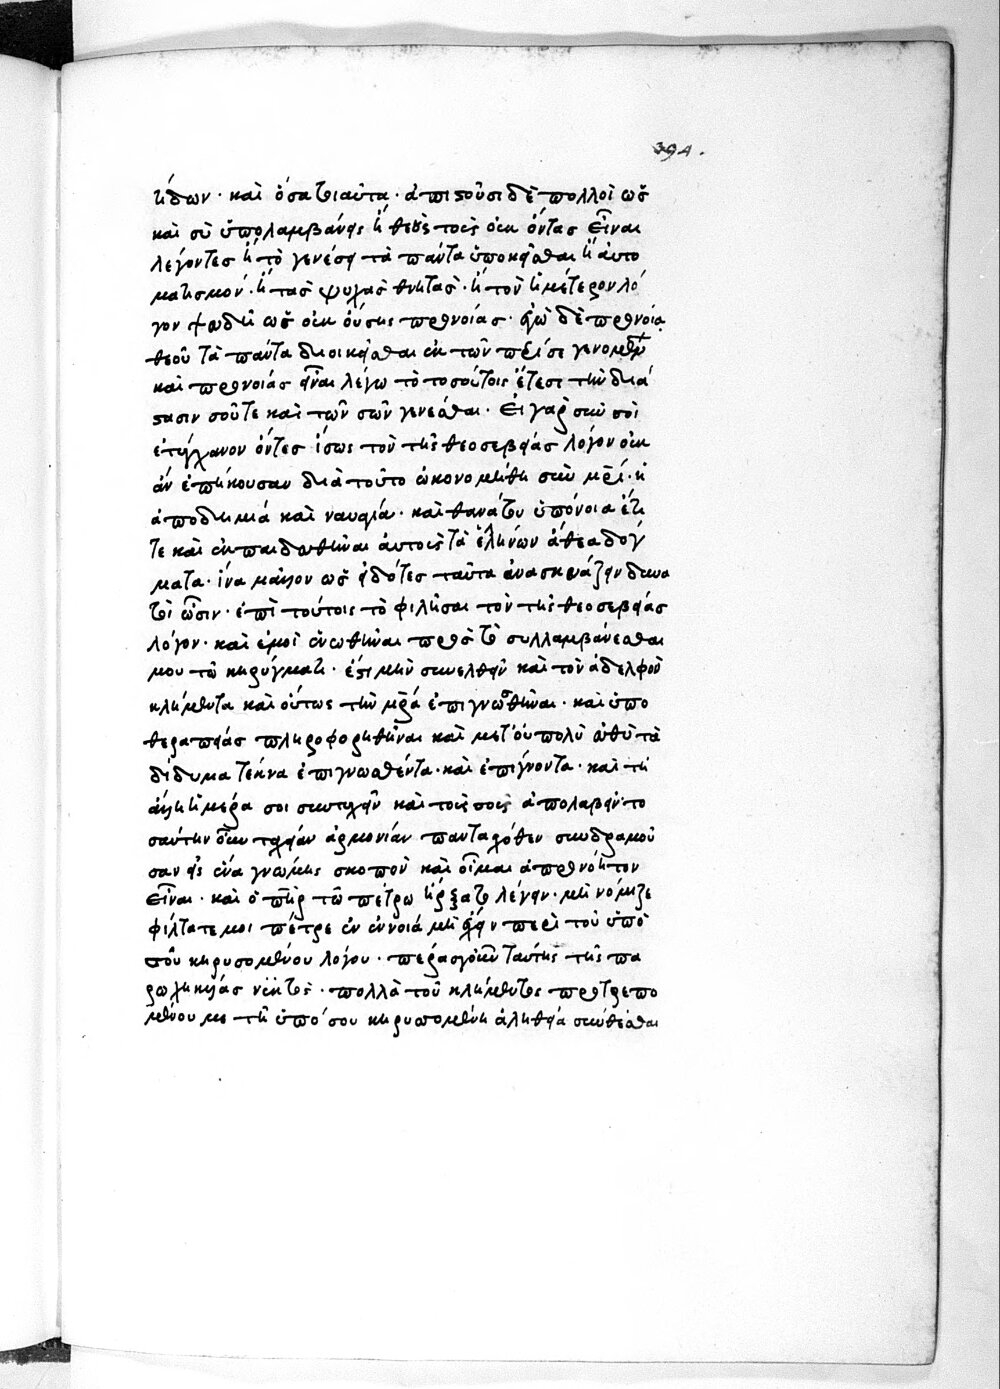 394.
τίδων· καὶ ὅσα τοιαῦτα· ἀπιστοῦσι δὲ πολλοὶ ὡς
καὶ σὺ ὑπολαμβάνεις ἢ θεοὺς τοὺς οὐκ ὄντας εἶναι
λέγοντες ἢ τὸ γενέσει τὰ πάντα ὑποκεῖσθαι ἢ αὐτο
ματισμόν· ἢ τὰς ψυχὰς θνητὰς· ἢ τὸν ἡμέτερον λό
γον ψευδῆ ὡς οὐκ οὔσης προνοίας· ἐγὼ δὲ προνοίᾳ
θεοῦ τὰ πάντα διοικεῖσθαι ἐκ τῶν περί σε γενομένων
καὶ προνοίας εἶναι λέγω τὸ τοσούτοις ἔτεσι τὴν διά
στασιν σοῦ τε καὶ τῶν σῶν γενέσθαι· Εἰ γὰρ σὺν σοὶ
ἐτύγχανον ὄντες ἴσως τὸν τῆς θεοσεβείας λόγον οὐκ
ἂν ἐπήκουσαν διὰ τοῦτο ὠκονομήθη σὺν μητρί· ἡ
ἀποδημία καὶ ναυαγία· καὶ θανάτου ὑπόνοια ἔτι
τε καὶ ἐκπαιδευθῆναι αὐτοὺς τὰ ἑλλήνων ἄθεα δόγ
ματα· ἵνα μᾶλλον ὡς εἰδότες ταῦτα ἀνασκευάζειν δυνα
τοὶ ὦσιν· ἐπὶ τούτοις τὸ φιλῆσαι τὸν τῆς θεοσεβείας
λόγον· καὶ ἐμοὶ ἑνωθῆναι πρὸς τὸ συλλαμβάνεσθαι
μου τῷ κηρύγματι· ἔτι μὴν συνελθεῖν καὶ τὸν ἀδελφὸν
κλήμεντα καὶ οὕτως τὴν μητέρα ἐπιγνωσθῆναι· καὶ ὑπο
θεραπείας πληροφορηθῆναι καὶ μετ' οὐ πολὺ εὐθὺ τὰ
δίδυμα τέκνα ἐπιγνωσθέντα· καὶ ἐπιγνόντα· καὶ τῇ
ἄλλῃ ἡμέρα σοι συντυχεῖν καὶ τοὺς σοὺς ἀπολαβεῖν το
σαύτην οὖν ταχεῖαν ἁρμονίαν πανταχόθεν συνδραμοῦ
σαν εἰς ἕνα γνώμης σκοπὸν καὶ οἶμαι ἀπρονόητον
εἶναι· καὶ ὁ πατὴρ τῷ πέτρω ἤρξατο λέγειν· μὴ νόμιζε
φίλτατέ μοι πέτρε ἐν ἐννοίᾳ μὴ ἔχειν περὶ τοῦ ὑπὸ
σοῦ κηρυσσομένου λόγου· πέρας γοῦν ταύτης τῆς πα
ρωχηκυίας νυκτὸς· πολλὰ τοῦ κλήμεντος προτρεπο
μένου με τῇ ὑπό σου κηρυσσομένῃ ἀληθείᾳ συνθέσθαι